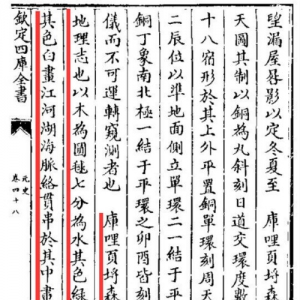 望漏屋晷影以定冬夏至　庫哩頁埒森
天圖其制以銅為丸斜刻日道交環度數
十八宿形於其上外平置銅單環刻周天
二辰位以準地面側立單環二一結于平
銅丁象南北極一結于平環之卯酉皆刻
儀而不可運轉窺測者也　庫哩頁埒森
地理志也以木為圓毬七分為水其色綠
其色白畫江河湖海脈絡貫串於其中畫
欽定四庫全書
元史
卷四十八